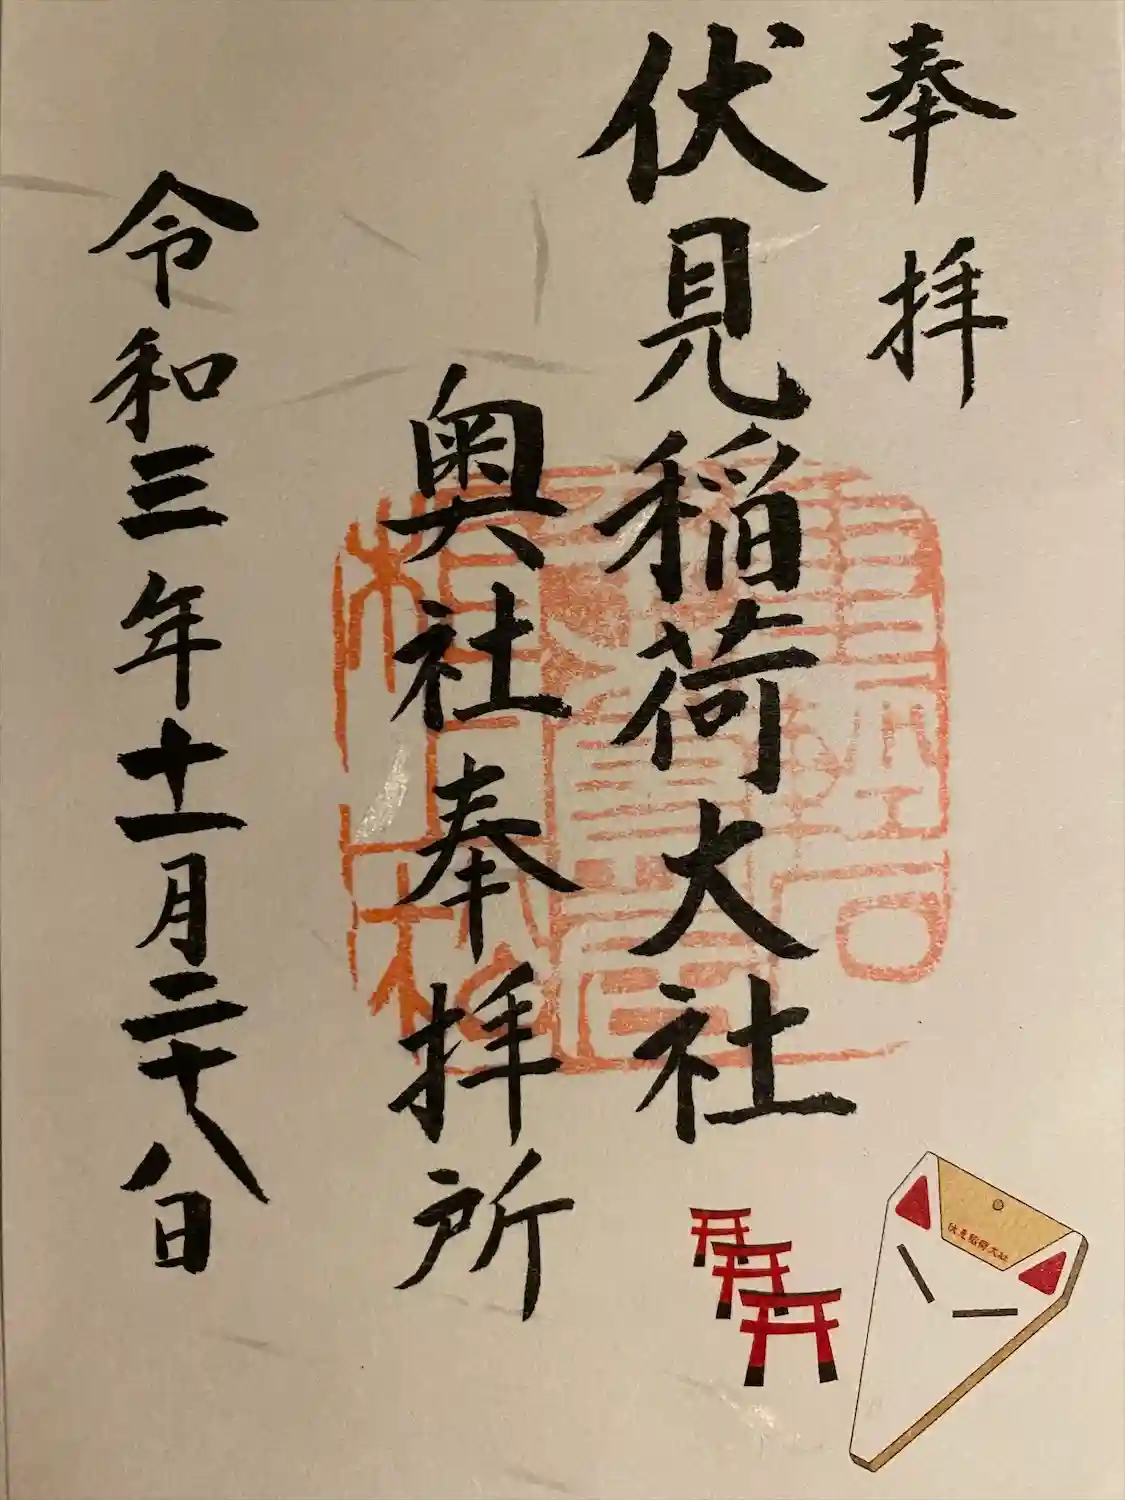 奉拝
伏見稲荷大社
奥社奉拝所
令和三年十一月二十八日
伏見稲荷大社